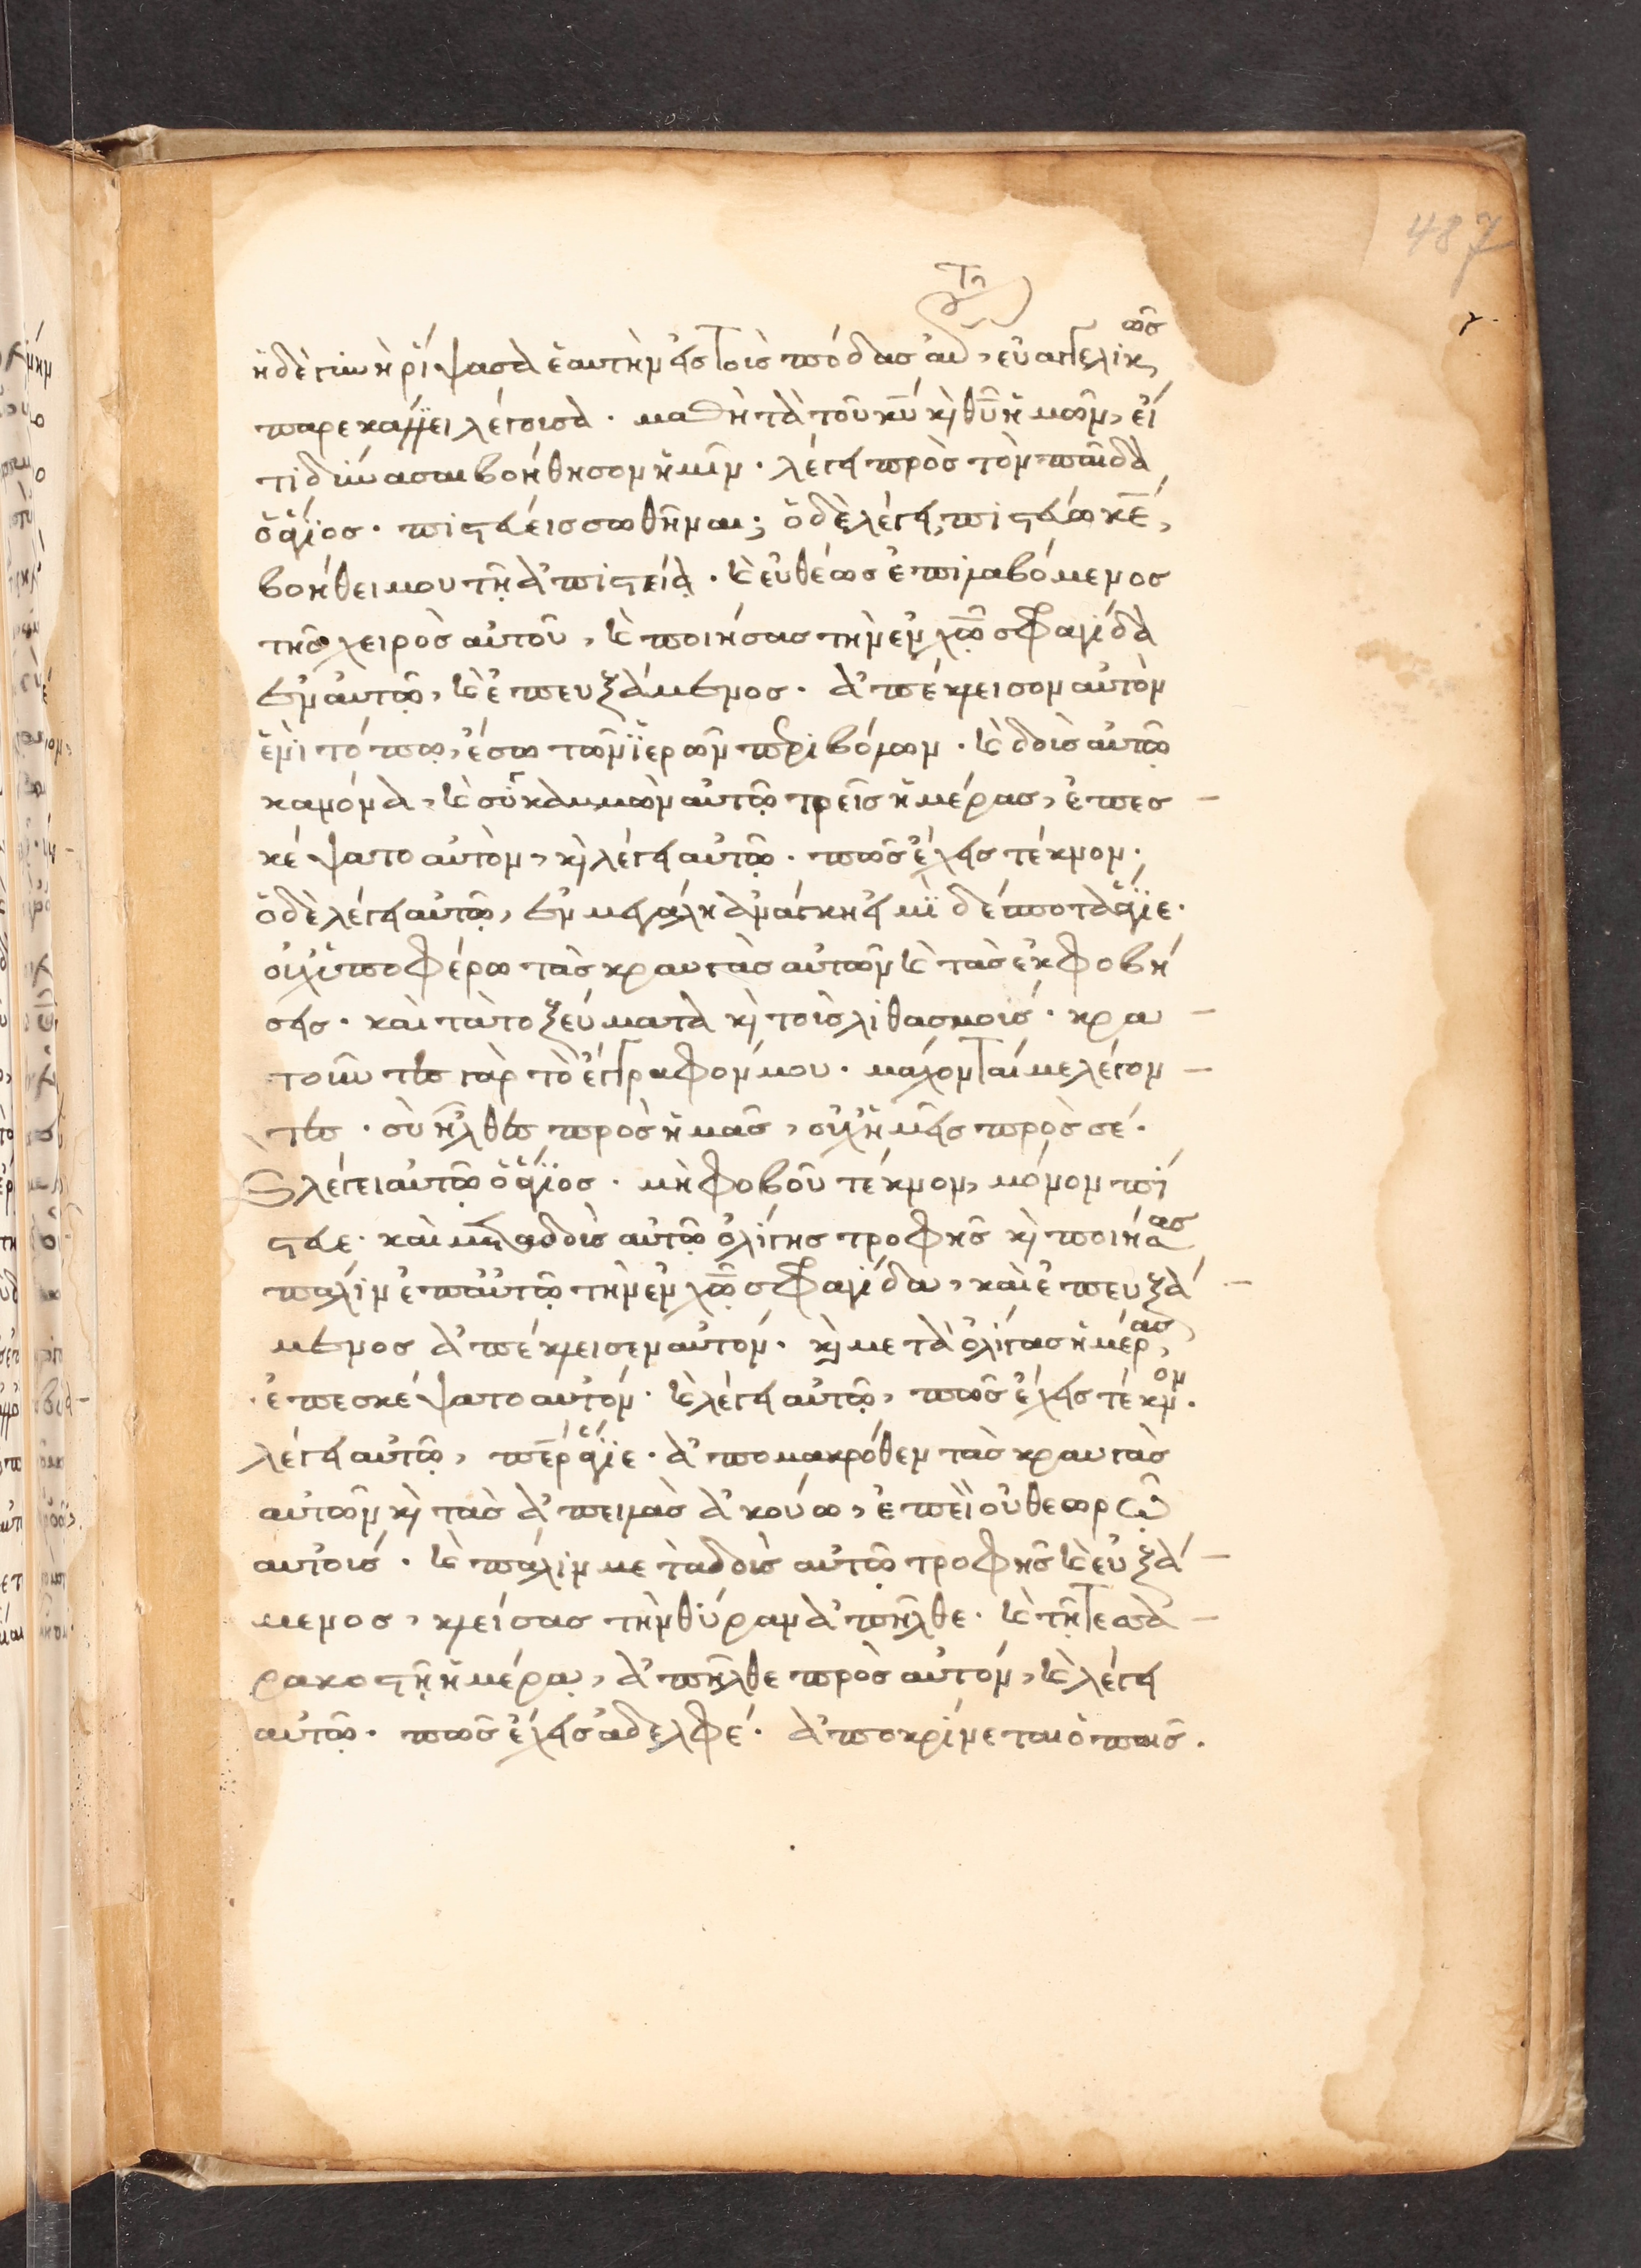 487
ἡ δὲ γυνὴ ῥίψασα ἑαυτὴν εἰς τοὺς πόδας αὐτοῦ, εὐαγγελικῶς
παρεκάλει λέγουσα · μαθητὰ τοῦ κυ κὶ θυ ἡμῶν, εἴ
τι δύνασαι βοήθησον ἡμῖν · λέγει πρὸς τὸν παῖδα
ὁ ἅγιος · πιστεύεις σωθῆναι; ὁ δὲ λέγει, πιστεύω κε,
βοήθει μου τῇ ἀπιστείᾳ · καὶ εὐθέως ἐπιλαβόμενος
τῆς χειρὸς αὐτοῦ, καὶ ποιήσας τὴν ἐν χω σφραγίδα
ἐν αὐτῷ, καὶ ἐπευξάμενος · ἀπέκλεισον αὐτὸν
ἐνὶ τόπῳ, ἔσω τῶν ἱερῶν περιβόλων · καὶ δοὺς αὐτῷ
κανόνα, καὶ συγκάμνων αὐτῷ τρεῖς ἡμέρας, ἐπεσ
κέψατο αὐτὸν, κὶ λέγει αὐτῷ · πῶς ἔχεις τέκνον ·
ὁ δὲ λέγει αὐτῷ, ἐν μεγάλη ἀνάγκη εἰμὶ δέσποτα ἅγιε ·
οὐχ ὑποφέρω τὰς κραυγὰς αὐτῶν καὶ τὰς ἐκφοβή
σεις · καὶ τὰ τοξεύματα κὶ τοὺς λιθασμούς · κρα
τοῦντες γὰρ τὸ ἔγγραφόν μου · μάχονταί με λέγον
τες · σὺ ἦλθες πρὸς ἡμᾶς, οὐχ ἡμεῖς πρὸς σέ ·
λέγει αὐτῷ ὁ ἅγιος · μὴ φοβοῦ τέκνον, μόνον πί
στευε · καὶ μεταδοὺς αὐτῷ ὀλίγης τροφῆς κὶ ποιήσας
πάλιν ἐπ' αὐτῷ τὴν ἐν χω σφραγίδα, καὶ ἐπευξά
μενος ἀπέκλεισεν αὐτόν · κὶ μετὰ ὀλίγας ἡμέρας,
ἐπεσκέψατο αὐτόν · καὶ λέγει αὐτῷ, πῶς ἔχεις τέκνον ·
λέγει αὐτῷ, περ ἅγιε · ἀπο μακρόθεν τὰς κραυγὰς
αὐτῶν κὶ τὰς ἀπειλὰς ἀκούω, ἐπεὶ οὐ θεωρῶ
αὐτούς · καὶ πάλιν μεταδοὺς αὐτῷ τροφῆς καὶ εὐξά
μενος, κλείσας τὴν θύραν ἀπῆλθε · καὶ τῇ τεσσα
ρακοστῇ ἡμέρᾳ, ἀπῆλθε πρὸς αὐτόν, καὶ λέγει
αὐτῷ · πῶς ἔχεις ἀδελφέ · ἀποκρίνεται ὁ παῖς ·